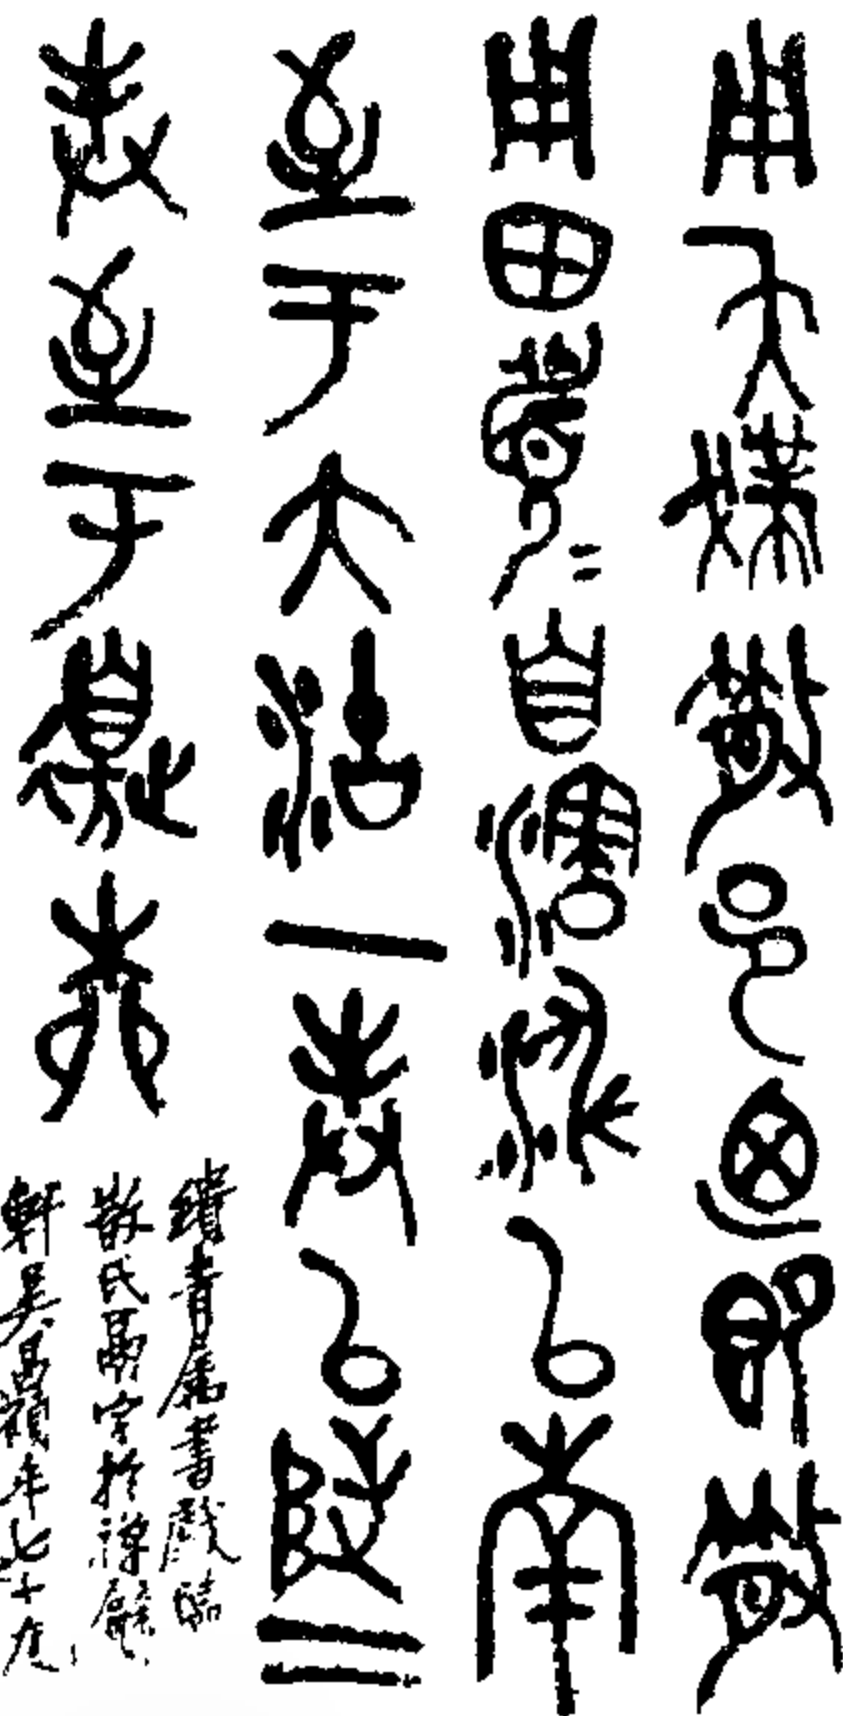 用夨撲散邑廼即散
用田眉自瀗涉以南
至于大沽一封以陟二
封至于邊柳
青属書戲臨
散氏鬲字於禪甓
軒吳昌碩年七十九